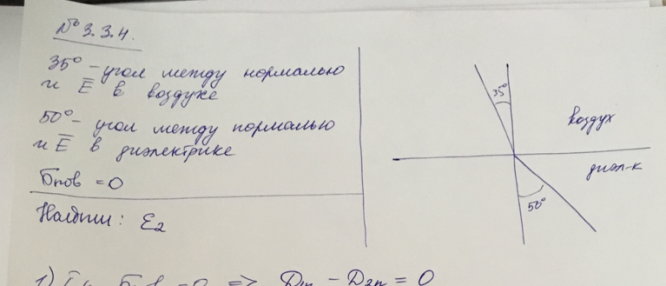 № 3.3.4.
35° – угол между нормалью
и E̅ в воздухе
50° – угол между нормалью
и E̅ в диэлектрике
σпов = 0
Найти: ε₂
35°
воздух
диэл-к
50°
= 0 => D₁ₙ – D₂ₙ = 0